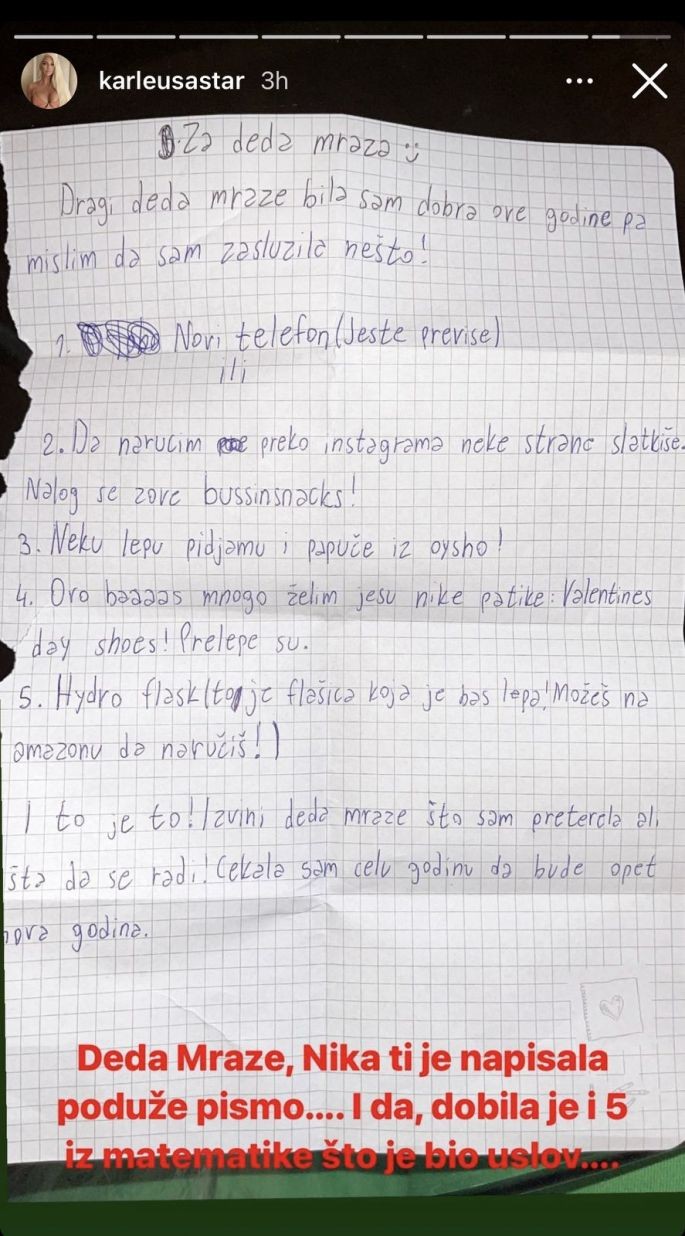 karleusastar 3h
Za deda mraza :)
Dragi deda mraze bila sam dobra ove godine pa
mislim da sam zasluzila nešto!
1. Novi telefon (Jeste previse)
ili
2. Da narucim preko instagrama neke strane slatkiše.
Nalog se zove bussinsnacks!
3. Neku lepu pidjamu i papuče iz oysho!
4. Ovo baaaas mnogo želim jesu nike patike: Valentines
day shoes! Prelepe su.
5. Hydro flask (to je flašica koja je bas lepa! Možeš na
amazonu da naručiš!)
I to je to! Izvini deda mraze što sam preterala ali
šta da se radi! Cekala sam celu godinu da bude opet
nova godina.
Deda Mraze, Nika ti je napisala
poduže pismo.... I da, dobila je i 5
iz matematike što je bio uslov....